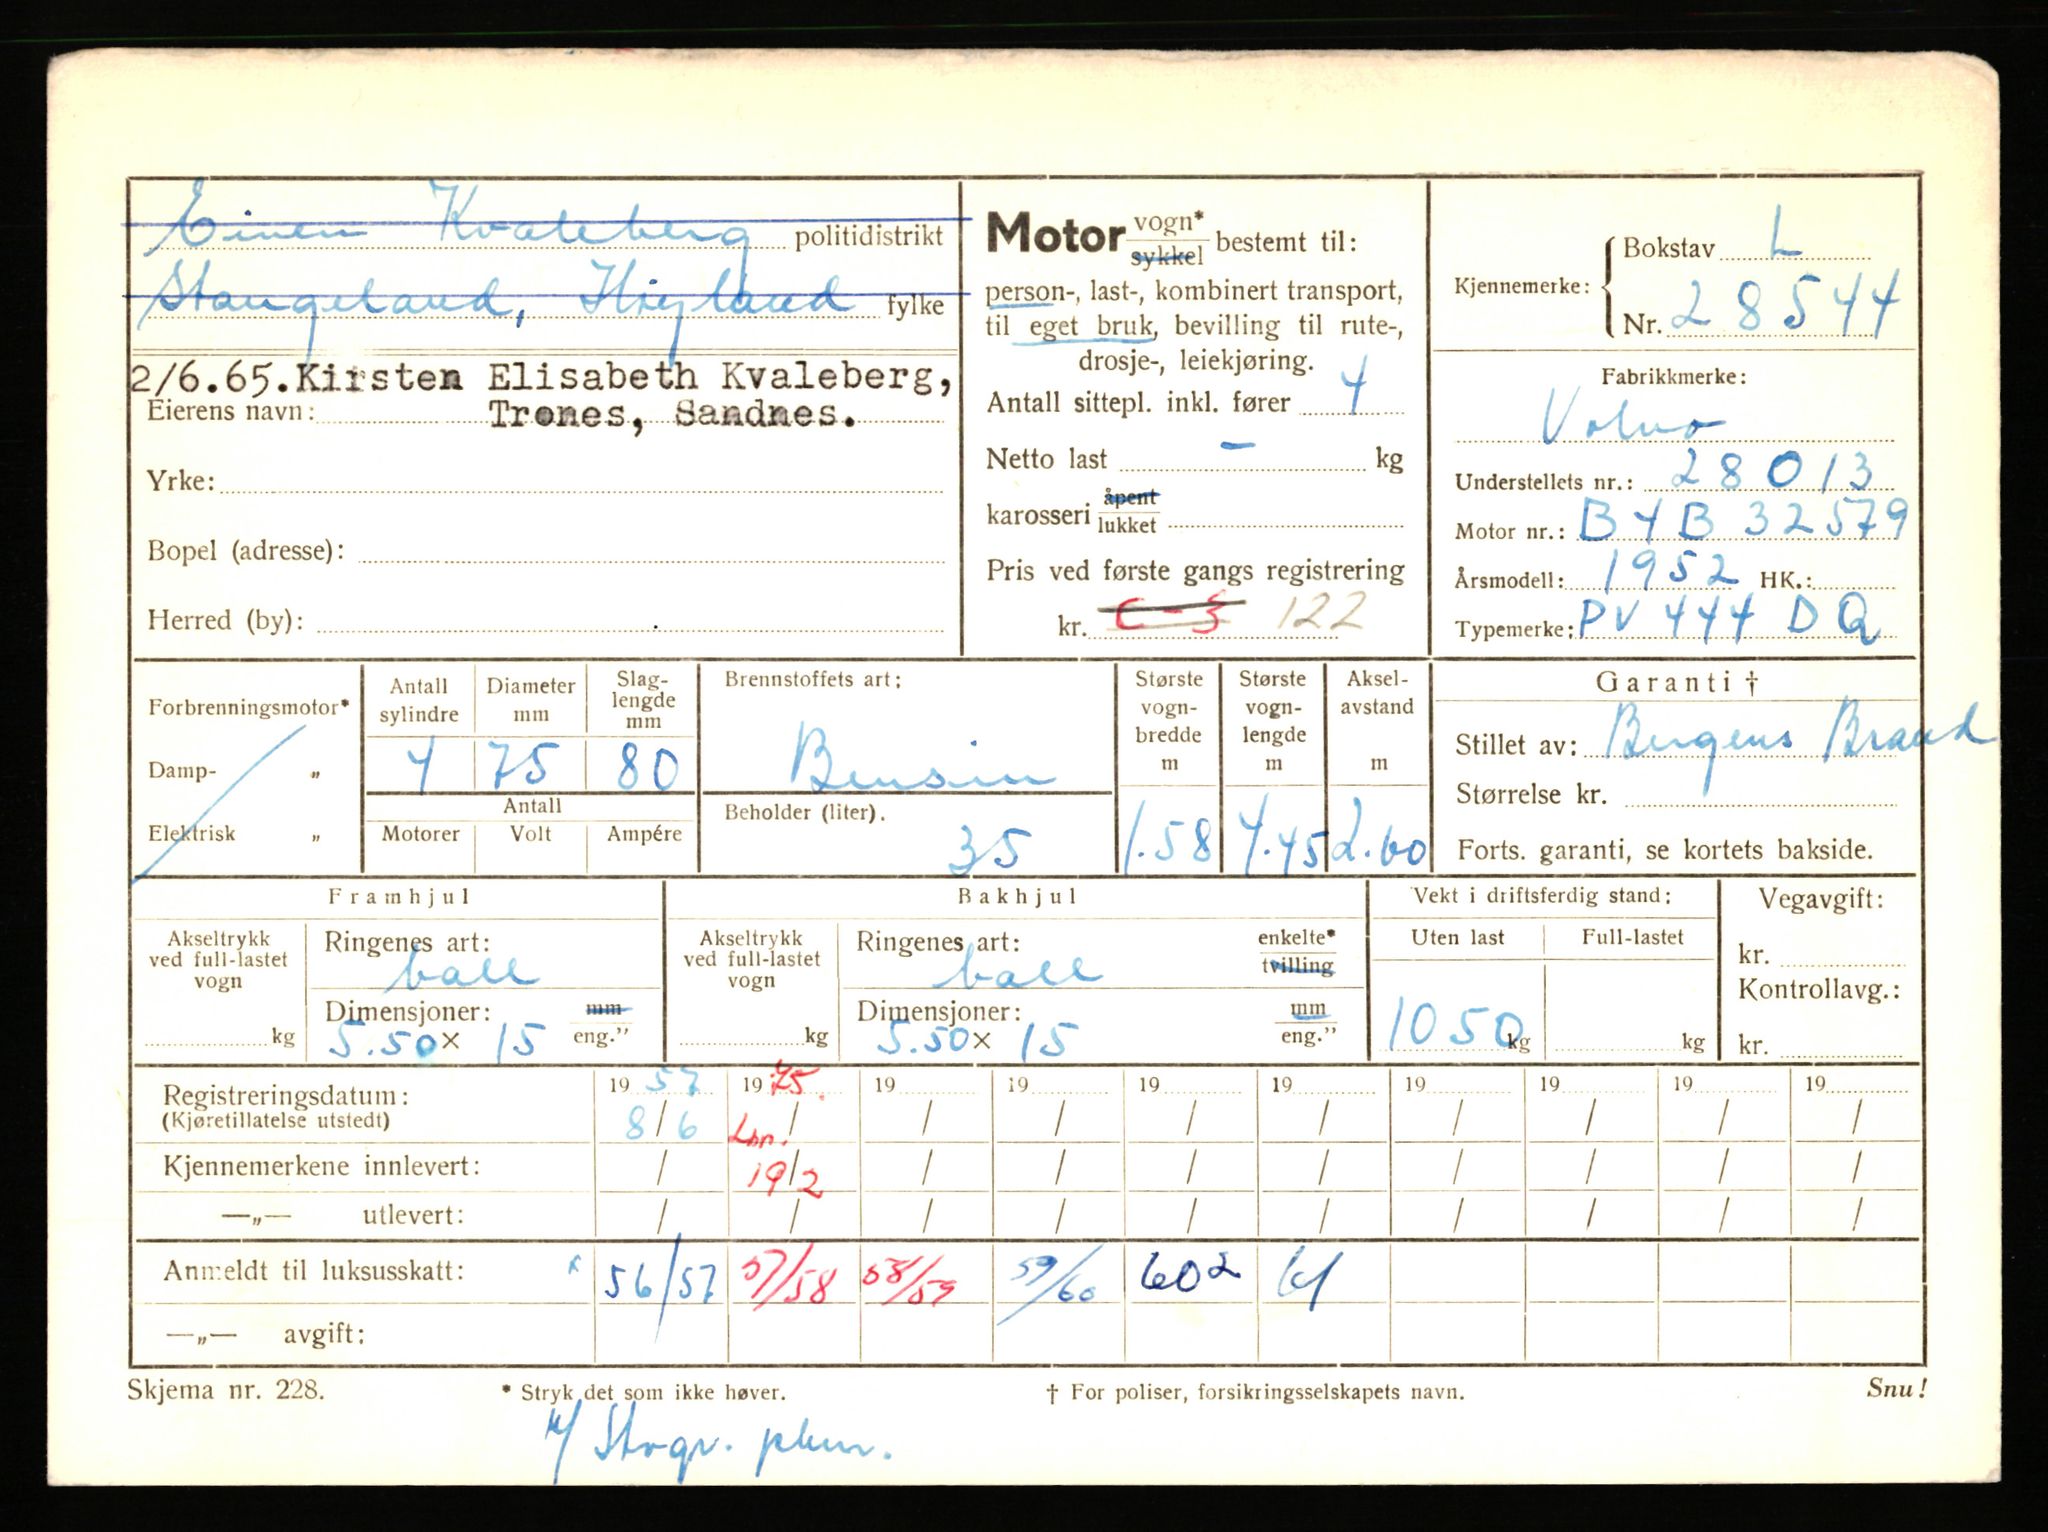 Einen Kvaleberg politidistrikt
Stangeland, Høyland fylke
2/6.65. Kirsten Elisabeth Kvaleberg,
Eierens navn: Trones, Sandnes.
Yrke:
Bopel (adresse):
Herred (by):
Motor vogn* sykkel bestemt til:
person-, last-, kombinert transport,
til eget bruk, bevilling til rute-,
drosje-, leiekjøring.
Antall sittepl. inkl. fører 4
Netto last - kg
karosseri åpent lukket
Pris ved første gangs registrering
kr. C-3 122
Kjennemerke: Bokstav L
Nr. 28544
Fabrikkmerke:
Volvo
Understellets nr.: 28013
Motor nr.: B4B 32579
Årsmodell: 1952 HK.:
Typemerke: PV 444 DQ
Forbrenningsmotor*
Damp- „
Elektrisk „
Antall sylindre 4
Diameter mm 75
Slaglengde mm 80
Antall
Motorer Volt Ampére
Brennstoffets art:
Bensin
Beholder (liter).
35
Største vognbredde m 1.58
Største vognlengde m 4.45
Akselavstand m 2.60
Garanti †
Stillet av: Bergens Brand
Størrelse kr.
Forts. garanti, se kortets bakside.
Framhjul
Akseltrykk ved full-lastet vogn kg
Ringenes art: ball
Dimensjoner: mm
5.50 x 15 eng.”
Bakhjul
Akseltrykk ved full-lastet vogn kg
Ringenes art: enkelte* tvilling
ball
Dimensjoner: mm
5.50 x 15 eng.”
Vekt i driftsferdig stand:
Uten last Full-lastet
1050 kg kg
Vegavgift:
kr.
Kontrollavg.:
kr.
Registreringsdatum: 19 57 19 75. 19 19 19 19 19 19 19 19
(Kjøretillatelse utstedt) 8/6 / / / / / / / / /
Kjennemerkene innlevert: / 19/2 / / / / / / / /
—„— utlevert: / / / / / / / / / /
Anmeldt til luksusskatt: x 56/57 57/58 58/59 59/60 602 61
—„— avgift:
Skjema nr. 228. * Stryk det som ikke høver. † For poliser, forsikringsselskapets navn. Snu!